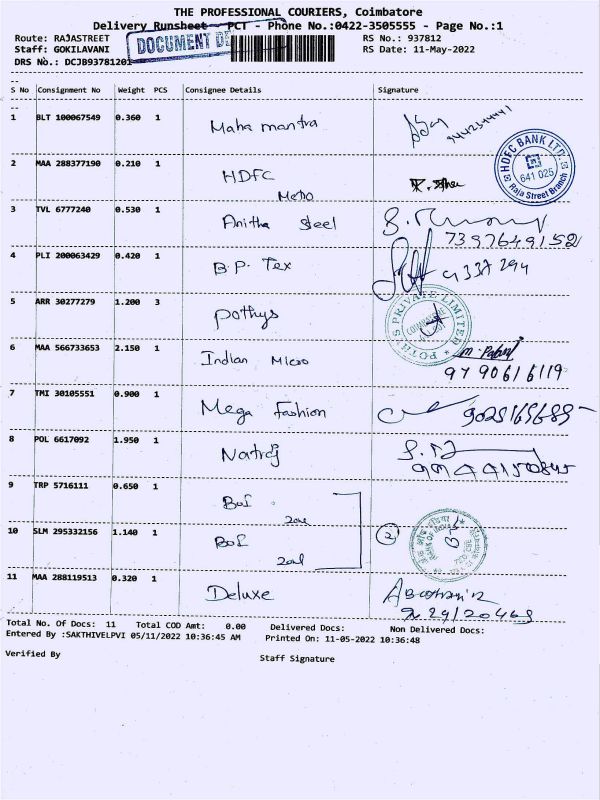 THE PROFESSIONAL COURIERS, Coimbatore
Delivery Runsheet - PCT - Phone No.:0422-3505555 - Page No.:1
Route: RAJASTREET RS No.: 937812
Staff: GOKILAVANI DOCUMENT RS Date: 11-May-2022
DRS No.: DCJB93781201
S No Consignment No Weight PCS Consignee Details Signature
1 BLT 100067549 0.360 1 Maha mantra
2 MAA 288377190 0.210 1 HDFC
Metro
HDFC BANK LTD.
641 025
Raja Street Branch
3 TVL 6777240 0.530 1 Anitha steel
7397649152
4 PLI 200063429 0.420 1 B.P. Tex
5 ARR 30277279 1.200 3 Pothys
POTHYS PRIVATE LIMITED
6 MAA 566733653 2.150 1 Indian Micro
9790616119
7 TMI 30105551 0.900 1 Mega fashion
8 POL 6617092 1.950 1 Natraj
9 TRP 5716111 0.650 1 BoI
10 SLM 295332156 1.140 1 BoI 2
11 MAA 288119513 0.320 1 Deluxe
Total No. Of Docs: 11 Total COD Amt: 0.00 Delivered Docs: Non Delivered Docs:
Entered By :SAKTHIVELPVI 05/11/2022 10:36:45 AM Printed On: 11-05-2022 10:36:48
Verified By Staff Signature